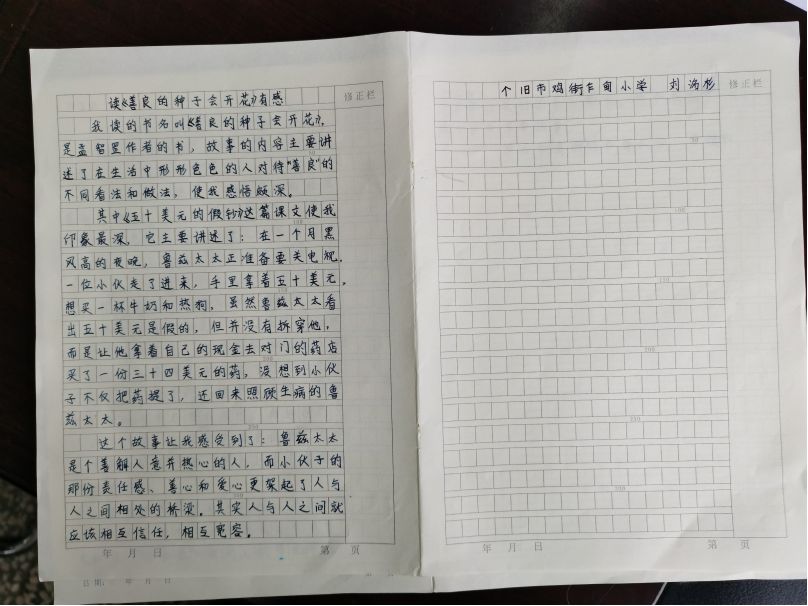 读《善良的种子会开花》有感
修正栏
我读的书名叫《善良的种子会开花》，
是孟智罡作者的书，故事的内容主要讲
述了在生活中形形色色的人对待“善良”的
不同看法和做法，使我感悟颇深。
其中《五十美元的假钞》这篇课文使我
印象最深，它主要讲述了：在一个月黑
风高的夜晚，鲁兹太太正准备要关电视，
一位小伙走了进来，手里拿着五十美元，
想买一杯牛奶和热狗，虽然鲁兹太太看
出五十美元是假的，但并没有拆穿他，
而是让他拿着自己的现金去对门的药店
买了一份三十四美元的药，没想到小伙
子不仅把药提了，还回来照顾生病的鲁
兹太太。
这个故事让我感受到了：鲁兹太太
是个善解人意并热心的人，而小伙子的
那份责任感、善心和爱心更架起了人与
人之间相处的桥梁。其实人与人之间就
应该相互信任，相互宽容。
年 月 日 第 页
日期： 年 月 日
个旧市鸡街乍甸小学 刘
修正栏
50
100
150
200
250
300
年 月 日 第 页